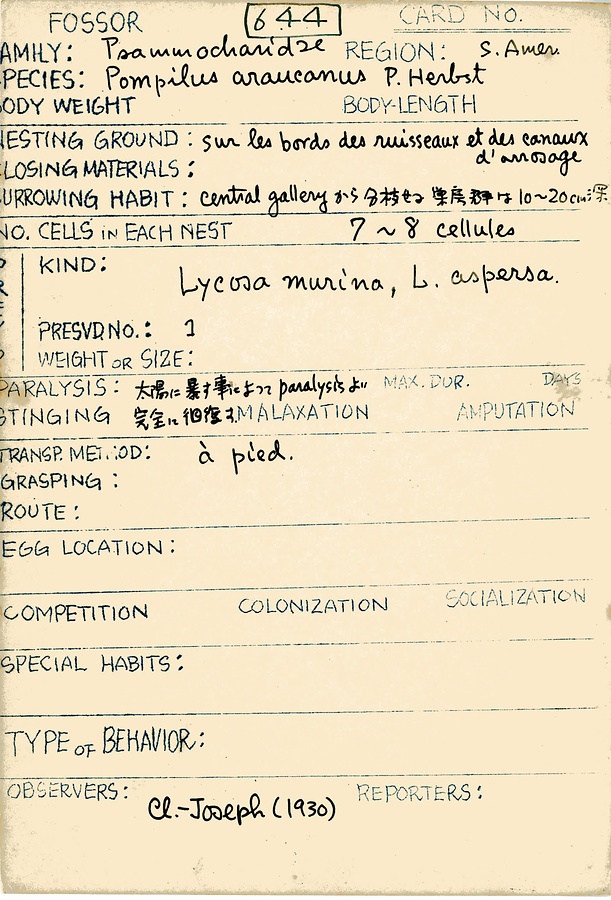 FOSSOR 644 CARD NO.
AMILY: Psammocharidae REGION: S. Amer.
PECIES: Pompilus araucanus P. Herbst
BODY WEIGHT BODY-LENGTH
NESTING GROUND: sur les bords des ruisseaux et des canaux
d'arrosage
LOSING MATERIALS:
URROWING HABIT: central gallery から分枝せる 巣房群は 10~20cm深
NO. CELLS IN EACH NEST 7 ~ 8 cellules
KIND: Lycosa murina, L. aspersa.
PRESVD NO.: 1
WEIGHT OR SIZE:
PARALYSIS: 太陽に暴す事によって paralysis より MAX. DUR. DAYS
STINGING 完全に恢復す. MALAXATION AMPUTATION
TRANSP. METHOD: à pied.
GRASPING:
ROUTE:
EGG LOCATION:
COMPETITION COLONIZATION SOCIALIZATION
SPECIAL HABITS:
TYPE OF BEHAVIOR:
OBSERVERS: Cl.-Joseph (1930) REPORTERS: